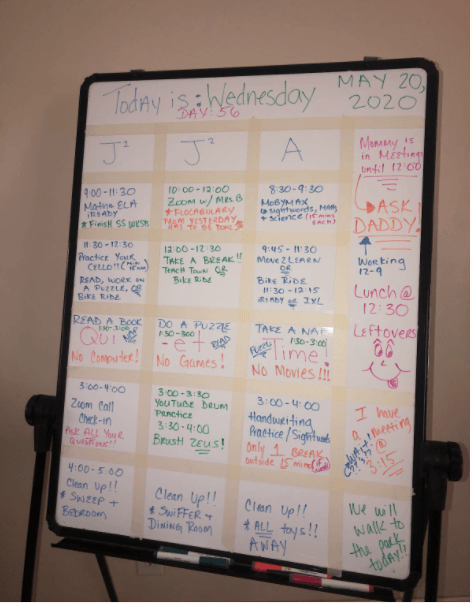 Today is: Wednesday
MAY 20,
2020
DAY 56
J1
J2
A
Mommy is
in Meetings
until 12:00
→ASK
DADDY!
Working
12-9
Lunch@
12:30
Leftovers
9:00-11:30
Math & ELA
iREADY
* Finish SS WKSH
10:00-12:00
ZOOM W/ MRS. B
* FLOCABULARY
FROM YESTERDAY
HAS TO BE DONE
8:30-9:30
MOBYMAX
Sightwords, Math
+ Science (15 mins
each)
11:30-12:30
PRACTICE YOUR
CELLO!!
READ, WORK ON
A PUZZLE, OR
BIKE RIDE
12:00-12:30
TAKE A BREAK!!
TEACH TOWN OR
BIKE RIDE
9:45-11:30
MOVE2LEARN
OR
BIKE RIDE
11:30-12:15
iREADY or IXL
READ A BOOK
1:30-3:00
QUI
No Computer!
DO A PUZZLE
1:30-3:00
-et
READ
No Games!
TAKE A NAP
1:30-3:00
PUZZLE
Time!
No Movies!!!
3:00-4:00
Zoom Call
Check-in
ASK ALL YOUR
QUESTIONS!!
3:00-3:30
YOUTUBE DRUM
PRACTICE
3:30-4:00
BRUSH ZEUS!
3:00-4:00
Handwriting
Practice/Sightwords
Only 1 BREAK
outside 15 mins
I have
a meeting
@
3:15
4:00-5:00
Clean Up!!
* SWEEP +
BEDROOM
Clean Up!!
* SWIFFER +
DINING ROOM
Clean Up!!
* ALL toys!!
AWAY
We will
walk to
the park
today!!